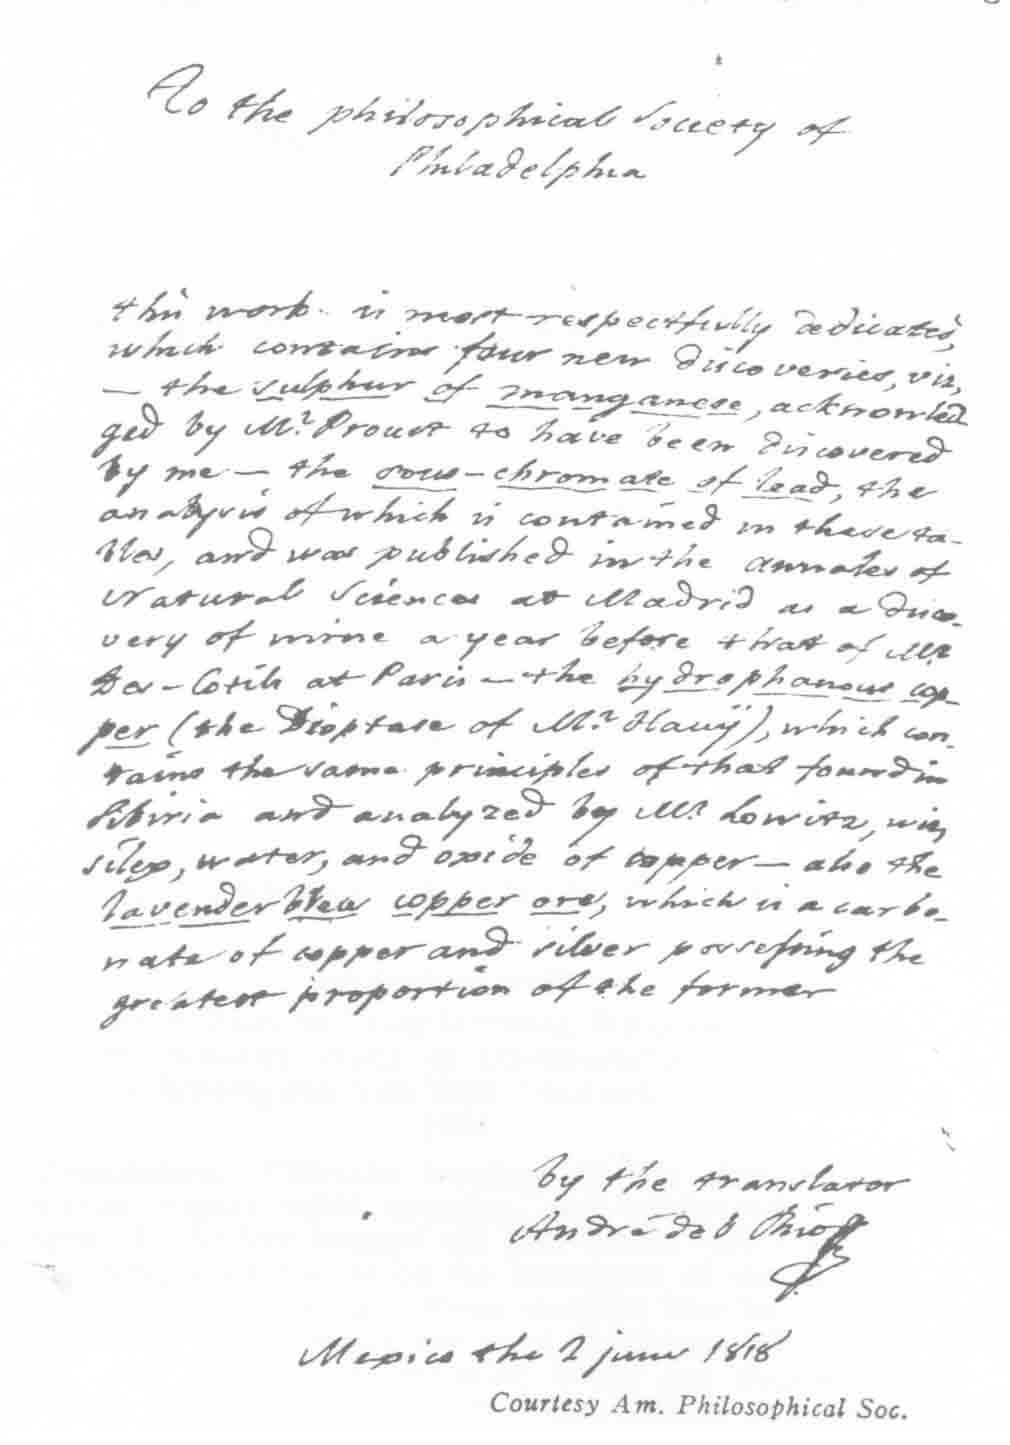 To the philosophical Society of
Philadelphia
this work is most respectfully dedicated,
which contains four new discoveries, viz,
— the sulphur of manganese, acknowled
ged by Mr Proust to have been discovered
by me — the sous-chromate of lead, the
analysis of which is contained in these ta-
bles, and was published in the annales of
Natural Sciences at Madrid as a disco-
very of mine a year before that of Mr
Des-Cotils at Paris — the hydrophanous cop-
per (the Dioptase of Mr Hauÿ), which con-
tains the same principles of that found in
Sibiria and analyzed by Mr Lowitz, viz,
silex, water, and oxide of copper — also the
lavender blew copper ore, which is a carbo-
nate of copper and silver possessing the
greatest proportion of the former
by the translator
André del Rio
Mexico the 2 june 1818
Courtesy Am. Philosophical Soc.